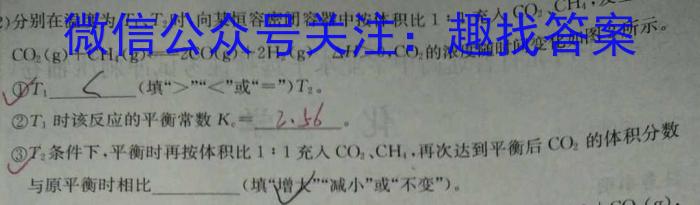 2)分别在温度为 时,向某恒容密闭容器中按体积比1:1充入CO₂、CH₄,发生
微信公众号关注：趣找答案
CO₂(g)+CH₄(g) 2CO(g)+2H₂(g) CO₂的浓度随时间变化如图 所示。
①T₁ < (填“>”“<”或“=”)T₂。
②T₁时该反应的平衡常数K_c= 2.56 。
③T₂条件下,平衡时再按体积比1:1充入CO₂、CH₄,再次达到平衡后CO₂的体积分数
与原平衡时相比 (填“增大”“减小”或“不变”)。